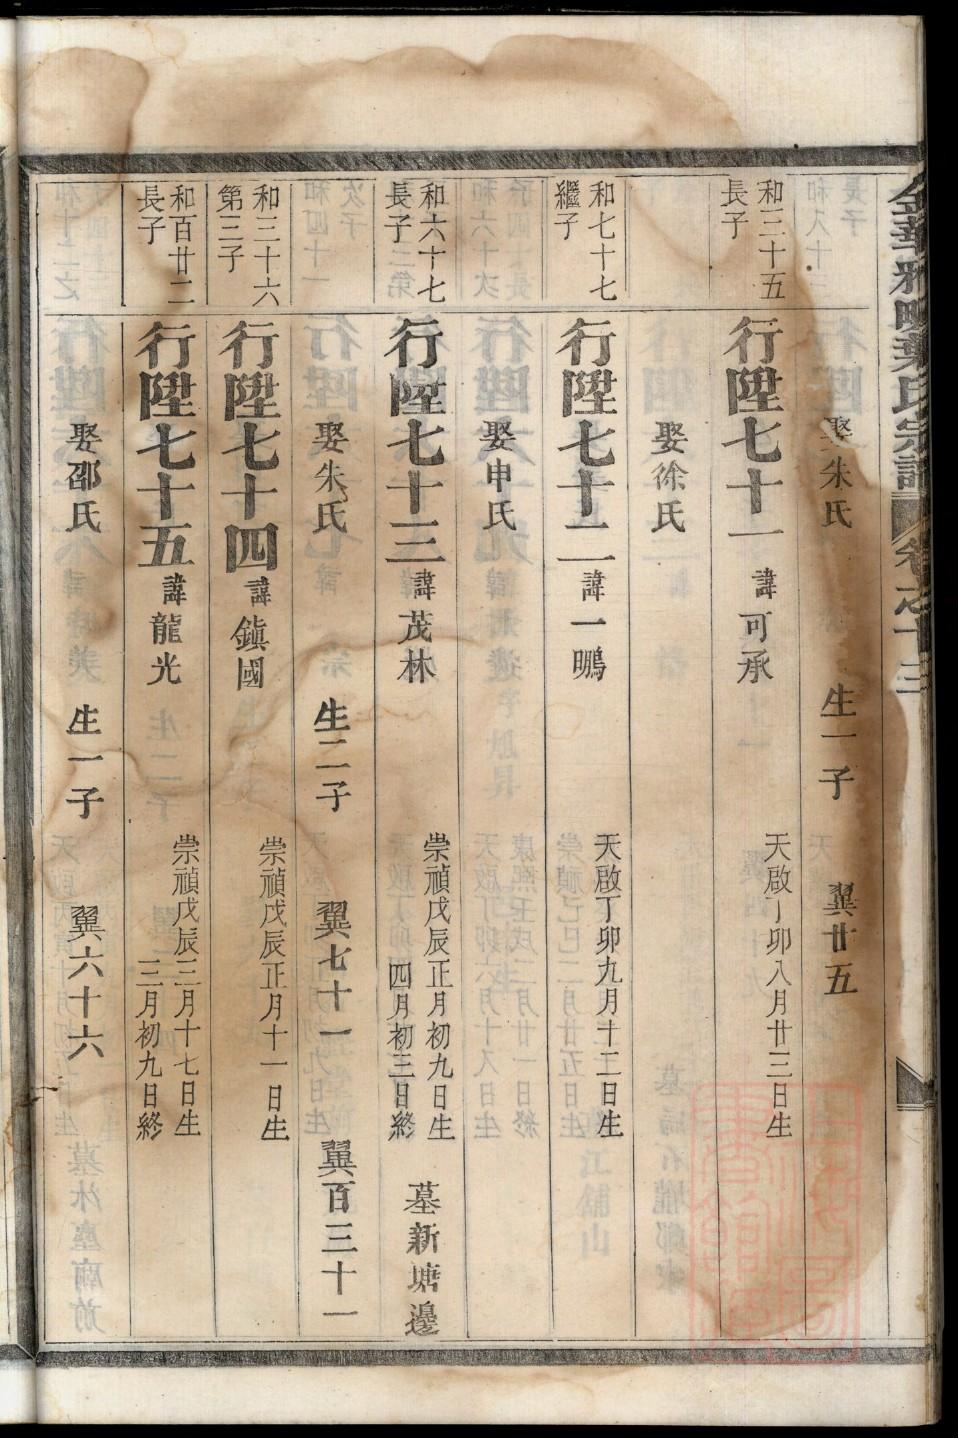 金華雅畈葉氏宗譜 卷之十三
娶朱氏 生一子 翼廿五
和三十五
長子
行陞七十一 諱可承 天啟丁卯八月廿三日生
娶徐氏
和七十七
繼子
行陞七十二 諱一鵰 天啟丁卯九月十二日生
娶申氏
和六十七
長子
行陞七十三 諱茂林 崇禎戊辰正月初九日生
四月初三日終 墓新塘邊
娶朱氏 生二子 翼七十一 翼百三十一
和三十六
第三子
行陞七十四 諱鎮國 崇禎戊辰正月十一日生
和百廿二
長子
行陞七十五 諱龍光 崇禎戊辰三月十七日生
三月初九日終
娶邵氏 生一子 翼六十六